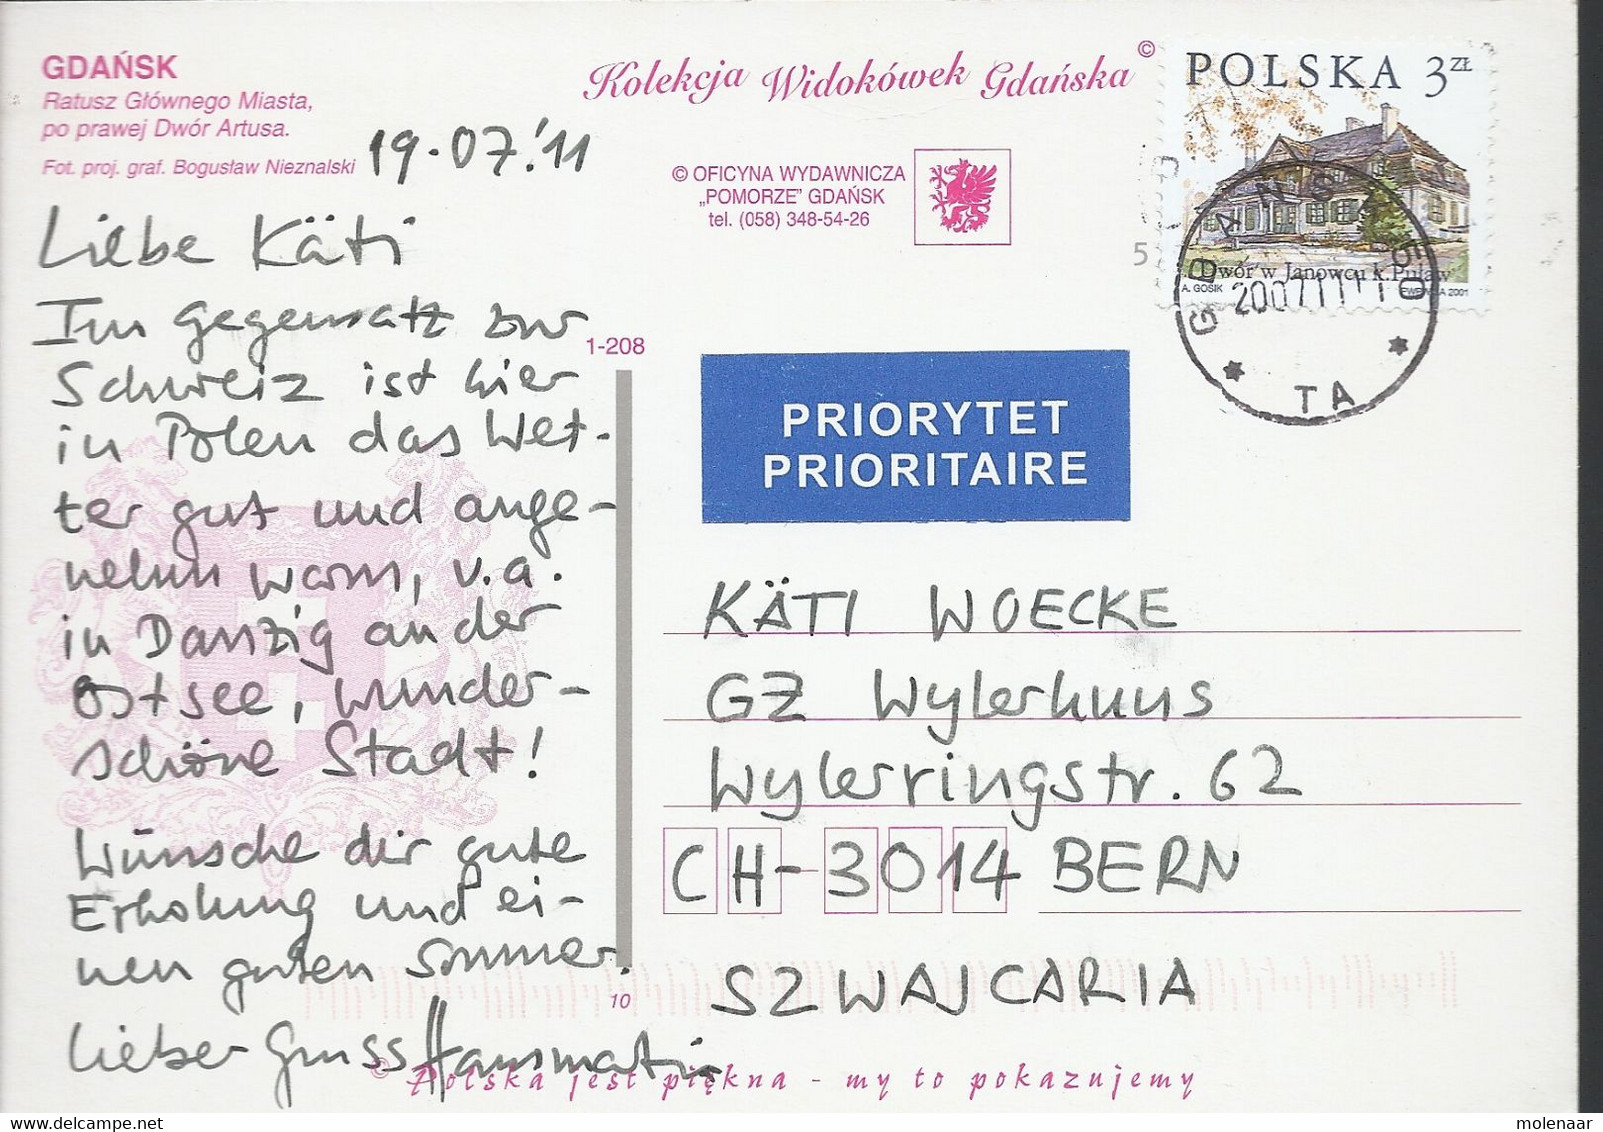 GDAŃSK
Ratusz Głównego Miasta,
po prawej Dwór Artusa.
Fot. proj. graf. Bogusław Nieznalski
19.07.'11
Kolekcja Widokówek Gdańska ©
© OFICYNA WYDAWNICZA
„POMORZE” GDAŃSK
tel. (058) 348-54-26
POLSKA 3ZŁ
Dwór w Janowcu k. Puław
A. GOSIK
2001
GDAŃSK 50
TA
5
Liebe Käti
Im Gegensatz zur
Schweiz ist hier
in Polen das Wet-
ter gut und ange-
nehm warm, v.a.
in Danzig an der
Ostsee, wunder-
schöne Stadt!
Wünsche dir gute
Erholung und ei-
nen guten Sommer.
Lieber Gruss Hansmartin
1-208
10
PRIORYTET
PRIORITAIRE
KÄTI WOECKE
GZ Wylerhuus
Wylerringstr. 62
CH-3014 BERN
SZWAJCARIA
© Polska jest piękna - my to pokazujemy
molenaar